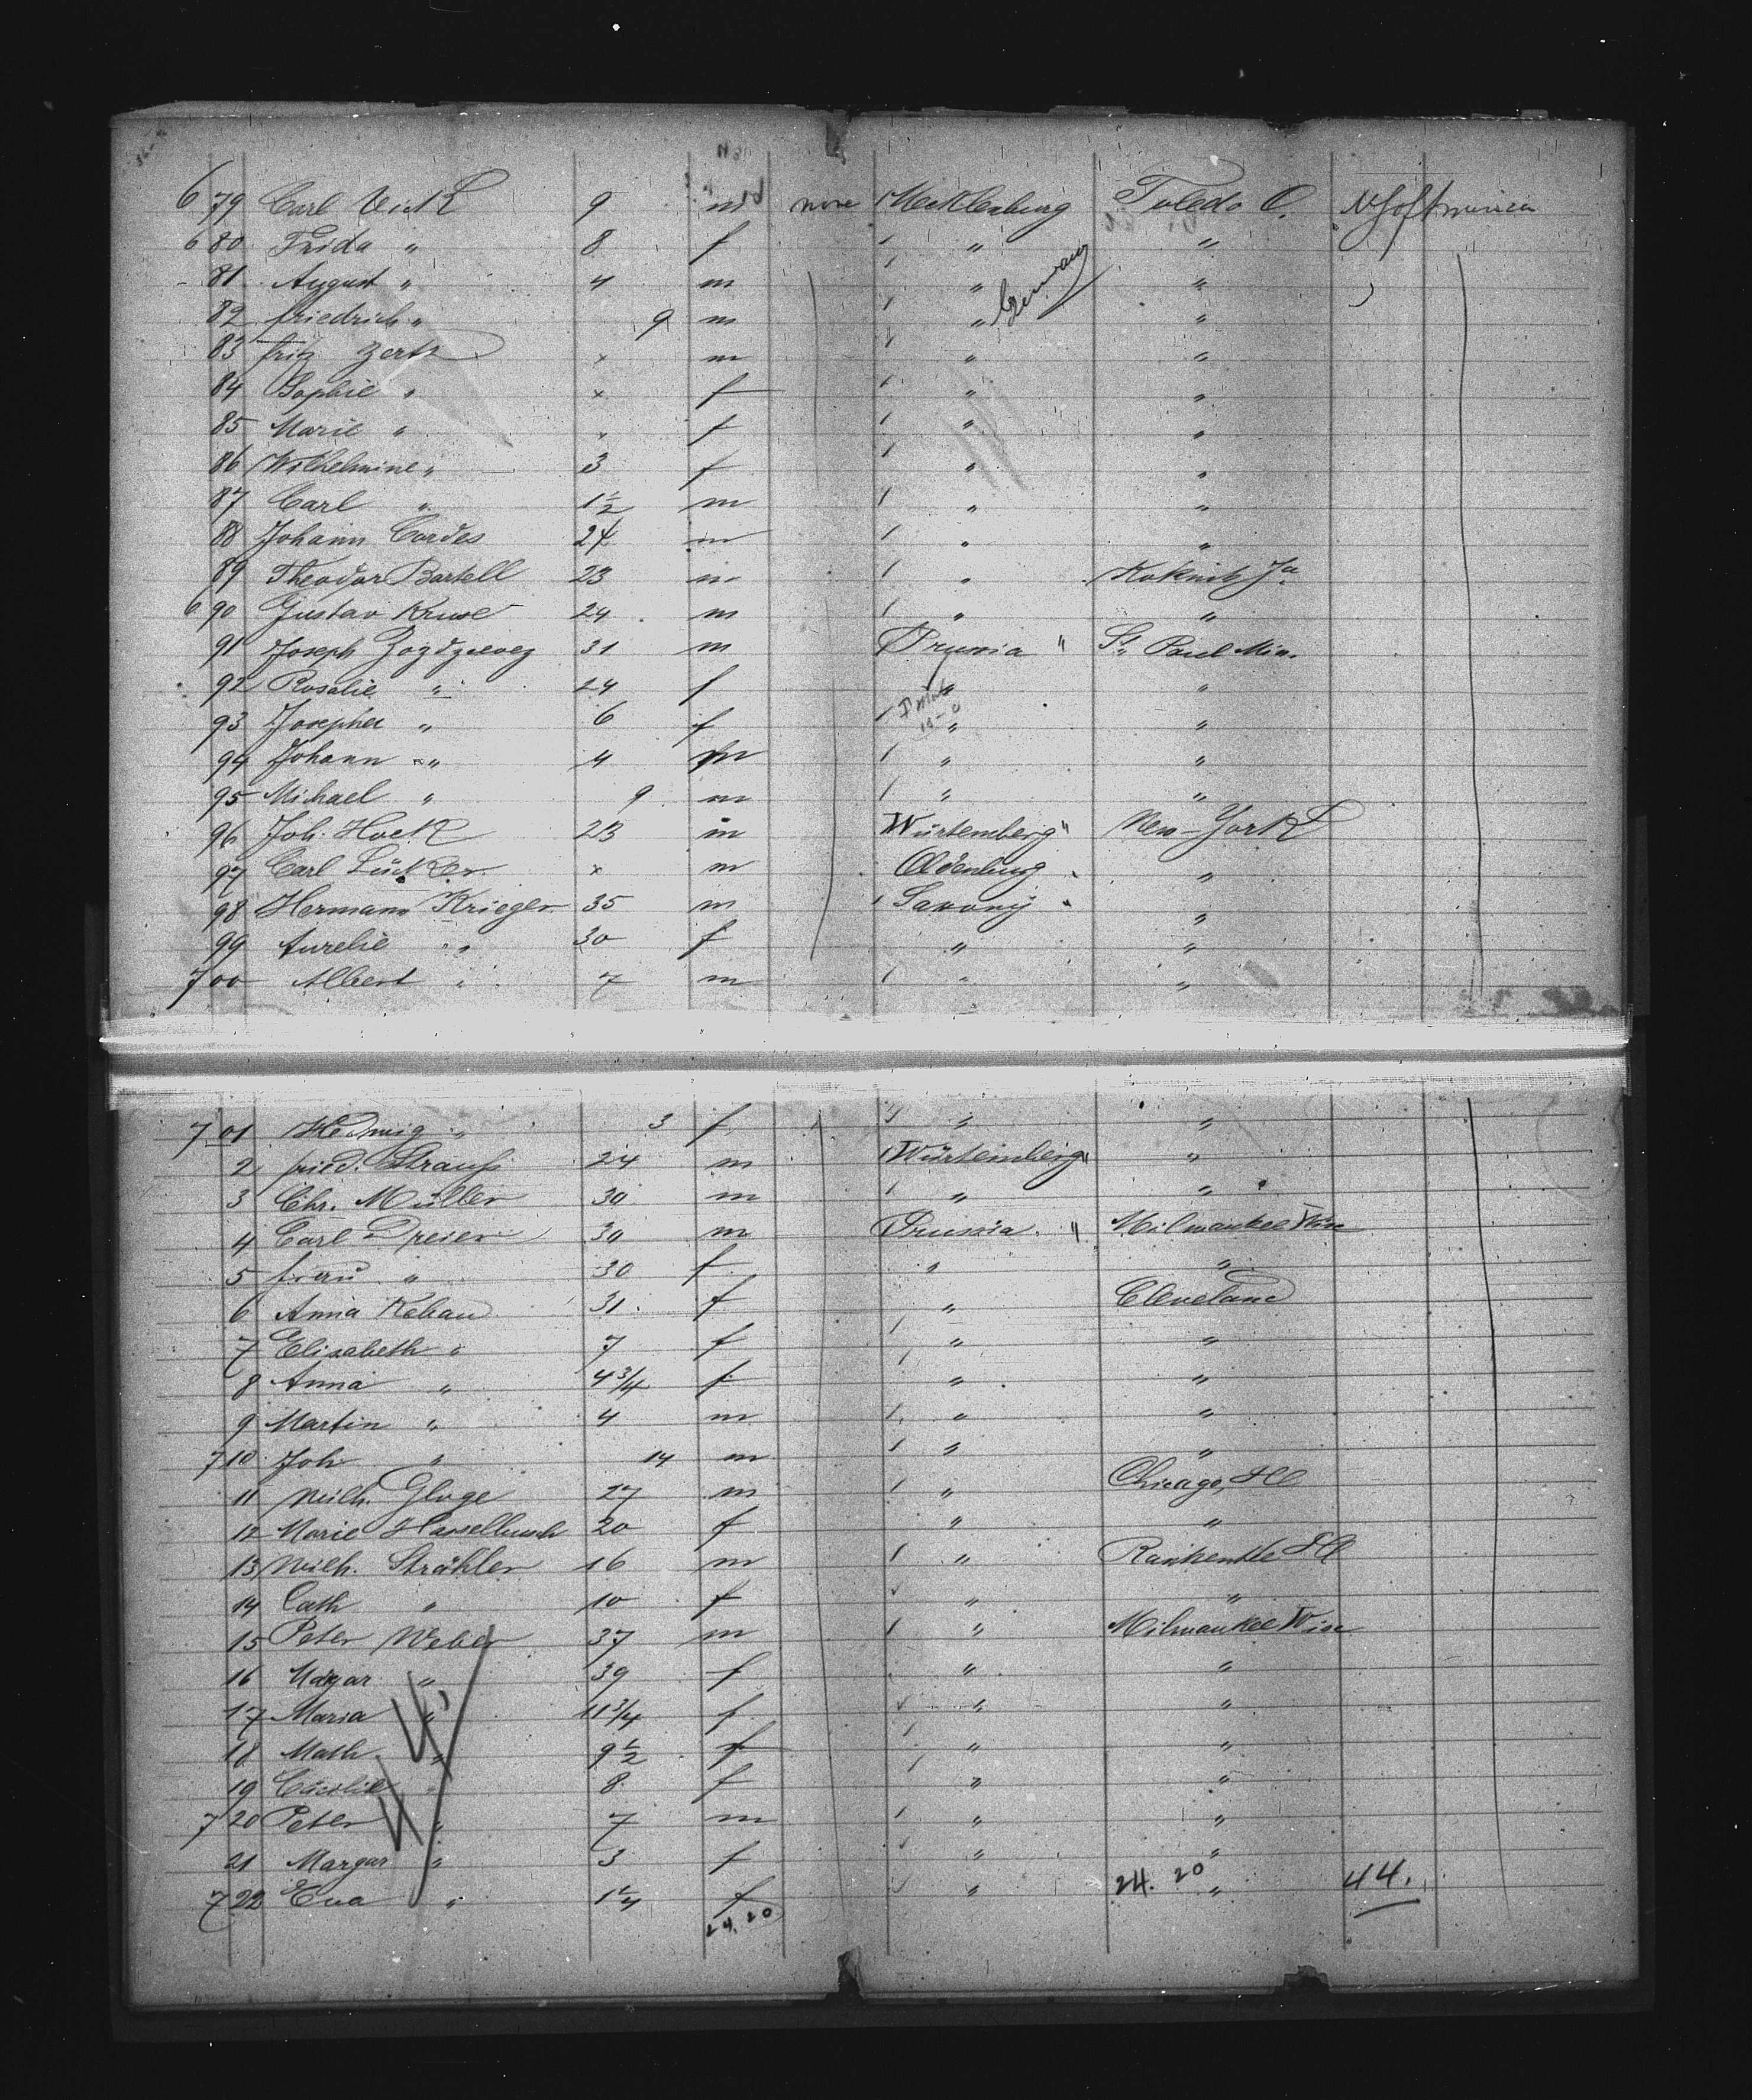 679 Carl Vick 9 m none Mecklenburg Toledo O.
680 Frida " 8 f " "
81 August " 4 m " "
82 Friedrich " 9 m " Germany "
83 Fritz Zerk × m " "
84 Sophie " × f " "
85 Marie " × f " "
86 Wilhelmine " 3 f " "
87 Carl " 1½ m " "
88 Johann Cordes 24 m " "
89 Theodor Bartell 23 m "
690 Gustav Kruse 24 m " "
91 Joseph 31 m Prussia " St. Paul Min.
92 Rosalie " 24 f " "
93 Josepha " 6 f " "
94 Johann " 4 m " "
95 Michael " 9 m " "
96 Joh. Hock 23 m Würtemberg " New-York
97 Carl Lücker × m Oldenburg " "
98 Hermann Krieger 35 m Saxony " "
99 Aurelie " 30 f " "
700 Albert " 7 m " "
701 Hedwig " 3 f " "
2 Fried. Strauß 24 m Würtemberg " "
3 Chr. Müller 30 m " "
4 Carl Dreier 30 m Prussia " Milwaukee Wis
5 Frau " 30 f " "
6 Anna Kehau 31 f " Cleveland
7 Elisabeth " 7 f " "
8 Anna " 4¾ f " "
9 Martin " 4 m " "
710 Joh " 14 m " "
11 Wilh. Gluge 27 m " Chicago, Ill
12 Marie Hasselbusch 20 f " "
13 Wilh. Strähler 16 m " Ill
14 Cath " 10 f " "
15 Peter Weber 37 m " Milwaukee Wis
16 Margar " 39 f " "
17 Maria " 11¾ f " "
18 Math " 9½ f " "
19 Cäcilie " 8 f " "
720 Peter " 7 m " "
21 Margar " 3 f " "
722 Eva " 1¼ f " 24. 20 " 44.
24. 20